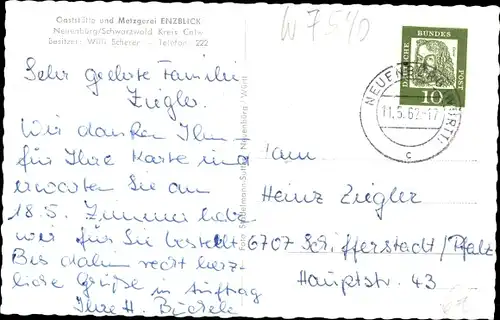 Gaststätte und Metzgerei ENZBLICK
Neuenbürg/Schwarzwald Kreis Calw
Besitzer: Willi Scherer - Telefon 222
W 7540
Sehr geehrte Familie
Ziegler.
Wir danken Ihnen
für Ihre Karte und
erwarten Sie am
18.5. Zimmer habe
wir für Sie bestellt
Bis dahin recht herz-
liche Grüße in Auftrag
Ihre H.
Neuenbürg/Württ
DEUTSCHE BUNDES POST
10
NEUENBÜRG (WÜRTT)
11.5.62-17
c
Fam.
Heinz Ziegler
6707 Schifferstadt/Pfalz
Hauptstr. 43